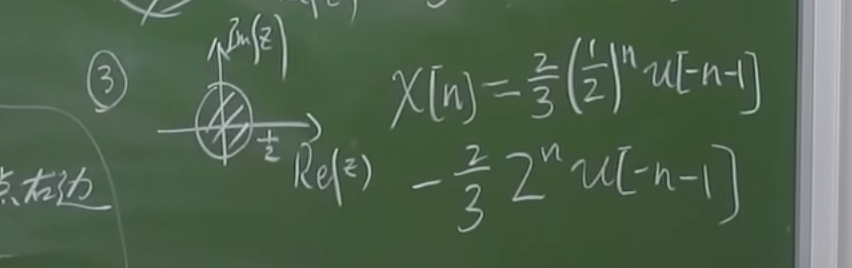 ③ Im(z)
1/2
Re(z)
x[n] = 2/3 (1/2)^n u[-n-1]
- 2/3 2^n u[-n-1]
点右边